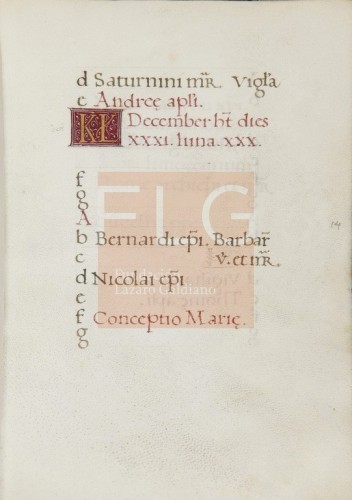 d Saturnini mr̃. Vigl'a
e Andreę apl'i.
KL December ht̃ dies
xxxi. luna. xxx.
f
g
A
b Bernardi epĩ. Barbar̃
v. et mr̃.
c
d Nicolai epĩ
e
f Conceptio Marię.
g
FLG
Fundación
Lázaro Galdiano